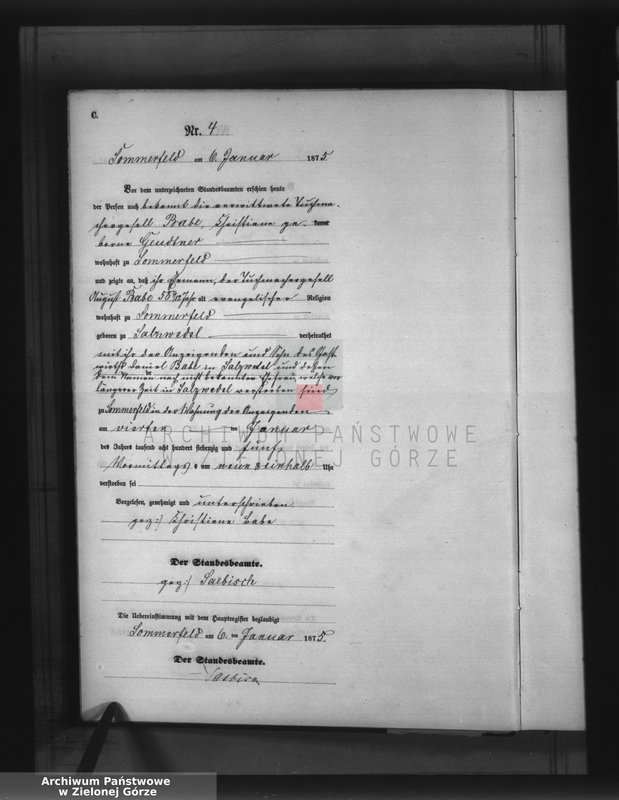 C.
Nr. 4
Sommerfeld am 6. Januar 1875
Vor dem unterzeichneten Standesbeamten erschien heute
der Person nach bekannt die verwittwete Tuchma-
chergesell Babe, Christiane ge- kannt
borne Gendtner
wohnhaft zu Sommerfeld
und zeigte an, daß ihr Ehemann, der Tuchmachergesell
August Babe 58 Jahr alt evangelischer Religion
wohnhaft zu Sommerfeld
geboren zu Salzwedel verheirathet
mit ihr der Anzeigenden und Sohn des Gast
wirth Daniel Babe in Salzwedel und dessen
dem Namen nach nicht bekannter Ehefrau, welche vor
längerer Zeit in Salzwedel verstorben sind
zu Sommerfeld in der Wohnung der Anzeigenden
am vierten ten Januar
des Jahres tausend acht hundert siebenzig und fünf
Vormittags um neun & einhalb Uhr
verstorben sei
Vorgelesen, genehmigt und unterschrieben
gez:) Christiane Babe
Der Standesbeamte.
gez:) Saebisch
Die Uebereinstimmung mit dem Hauptregister beglaubigt
Sommerfeld am 6. ten Januar 1875.
Der Standesbeamte.
ARCHIWUM PAŃSTWOWE
W ZIELONEJ GÓRZE
Archiwum Państwowe
w Zielonej Górze